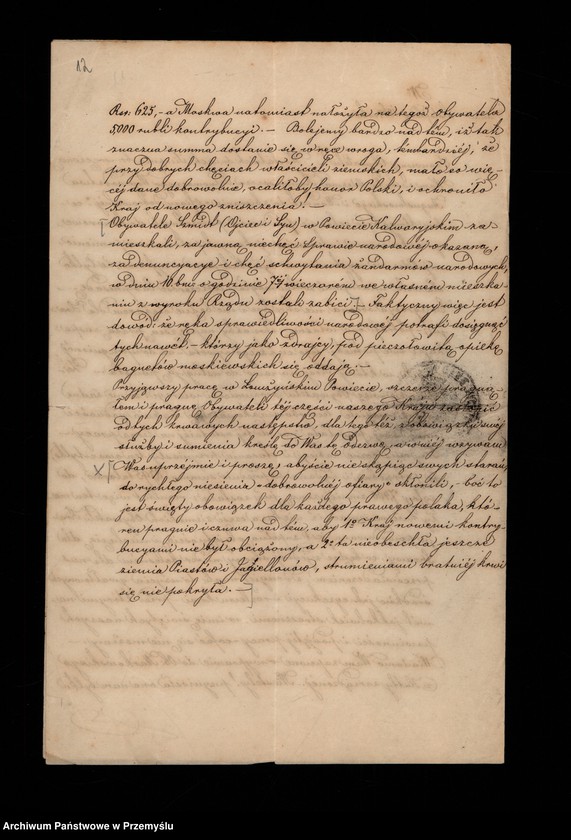 12
Rsr: 625,- a Moskwa natomiast nałożyła na tegoż Obywatela
5000 rubli kontrybucyi. — Bolejemy bardzo nad tém, iż tak
znaczna summa dostanie się w ręce wroga, tembardziéj, że
przy dobrych chęciach właścicieli ziemskich, mało co wię-
céj dane dobrowolnie, ocaliłoby honor Polski, i ochroniło
Kraj od nowego zniszczenia. —
Obywatele Szmidt (Ojciec i Syn) w Powiecie Kalwaryjskim za-
mieszkali, za jawną niechęć Sprawie narodowéj okazaną,
za denuncyacye i chęć schwytania żandarmów narodowych,
w dniu 10. bm: o godzinie 7éj wieczorém we własném mieszka-
niu z wyroku Rządu zostali zabici. — Faktyczny więc jest
dowód: że ręka sprawiedliwości narodowéj potrafi dosięgnąć
tych nawét, — którzy jako zdrajcy, pod pieczołowitą opiekę
bagnetów moskiewskich się oddają. —
Przyjąwszy pracę w Łomżyńskim Powiecie, szczerze pragną-
łem i pragnę Obywateli téj części naszego Kraju
od tych krwawych następstw, dla tego też z obowiązku swéj
służby i sumienia kreślę do Was tę odezwę, a w niéj wzywam
Was uprzéjmie i proszę, abyście nie skąpiąc swych starań,
do rychłego niesienia "dobrowolnéj ofiary" skłonili, — boć to
jest święty obowiązek dla każdego prawego polaka, któ-
ren pragnie i czuwa nad tém, aby 1º Kraj nowemi kontry-
bucyami nie był obciążony, a 2º ta nieobeschła jeszcze
ziemia Piastów i Jagiellonów, strumieniami bratniéj krwi
się nie pokryła. —
Archiwum Państwowe w Przemyślu